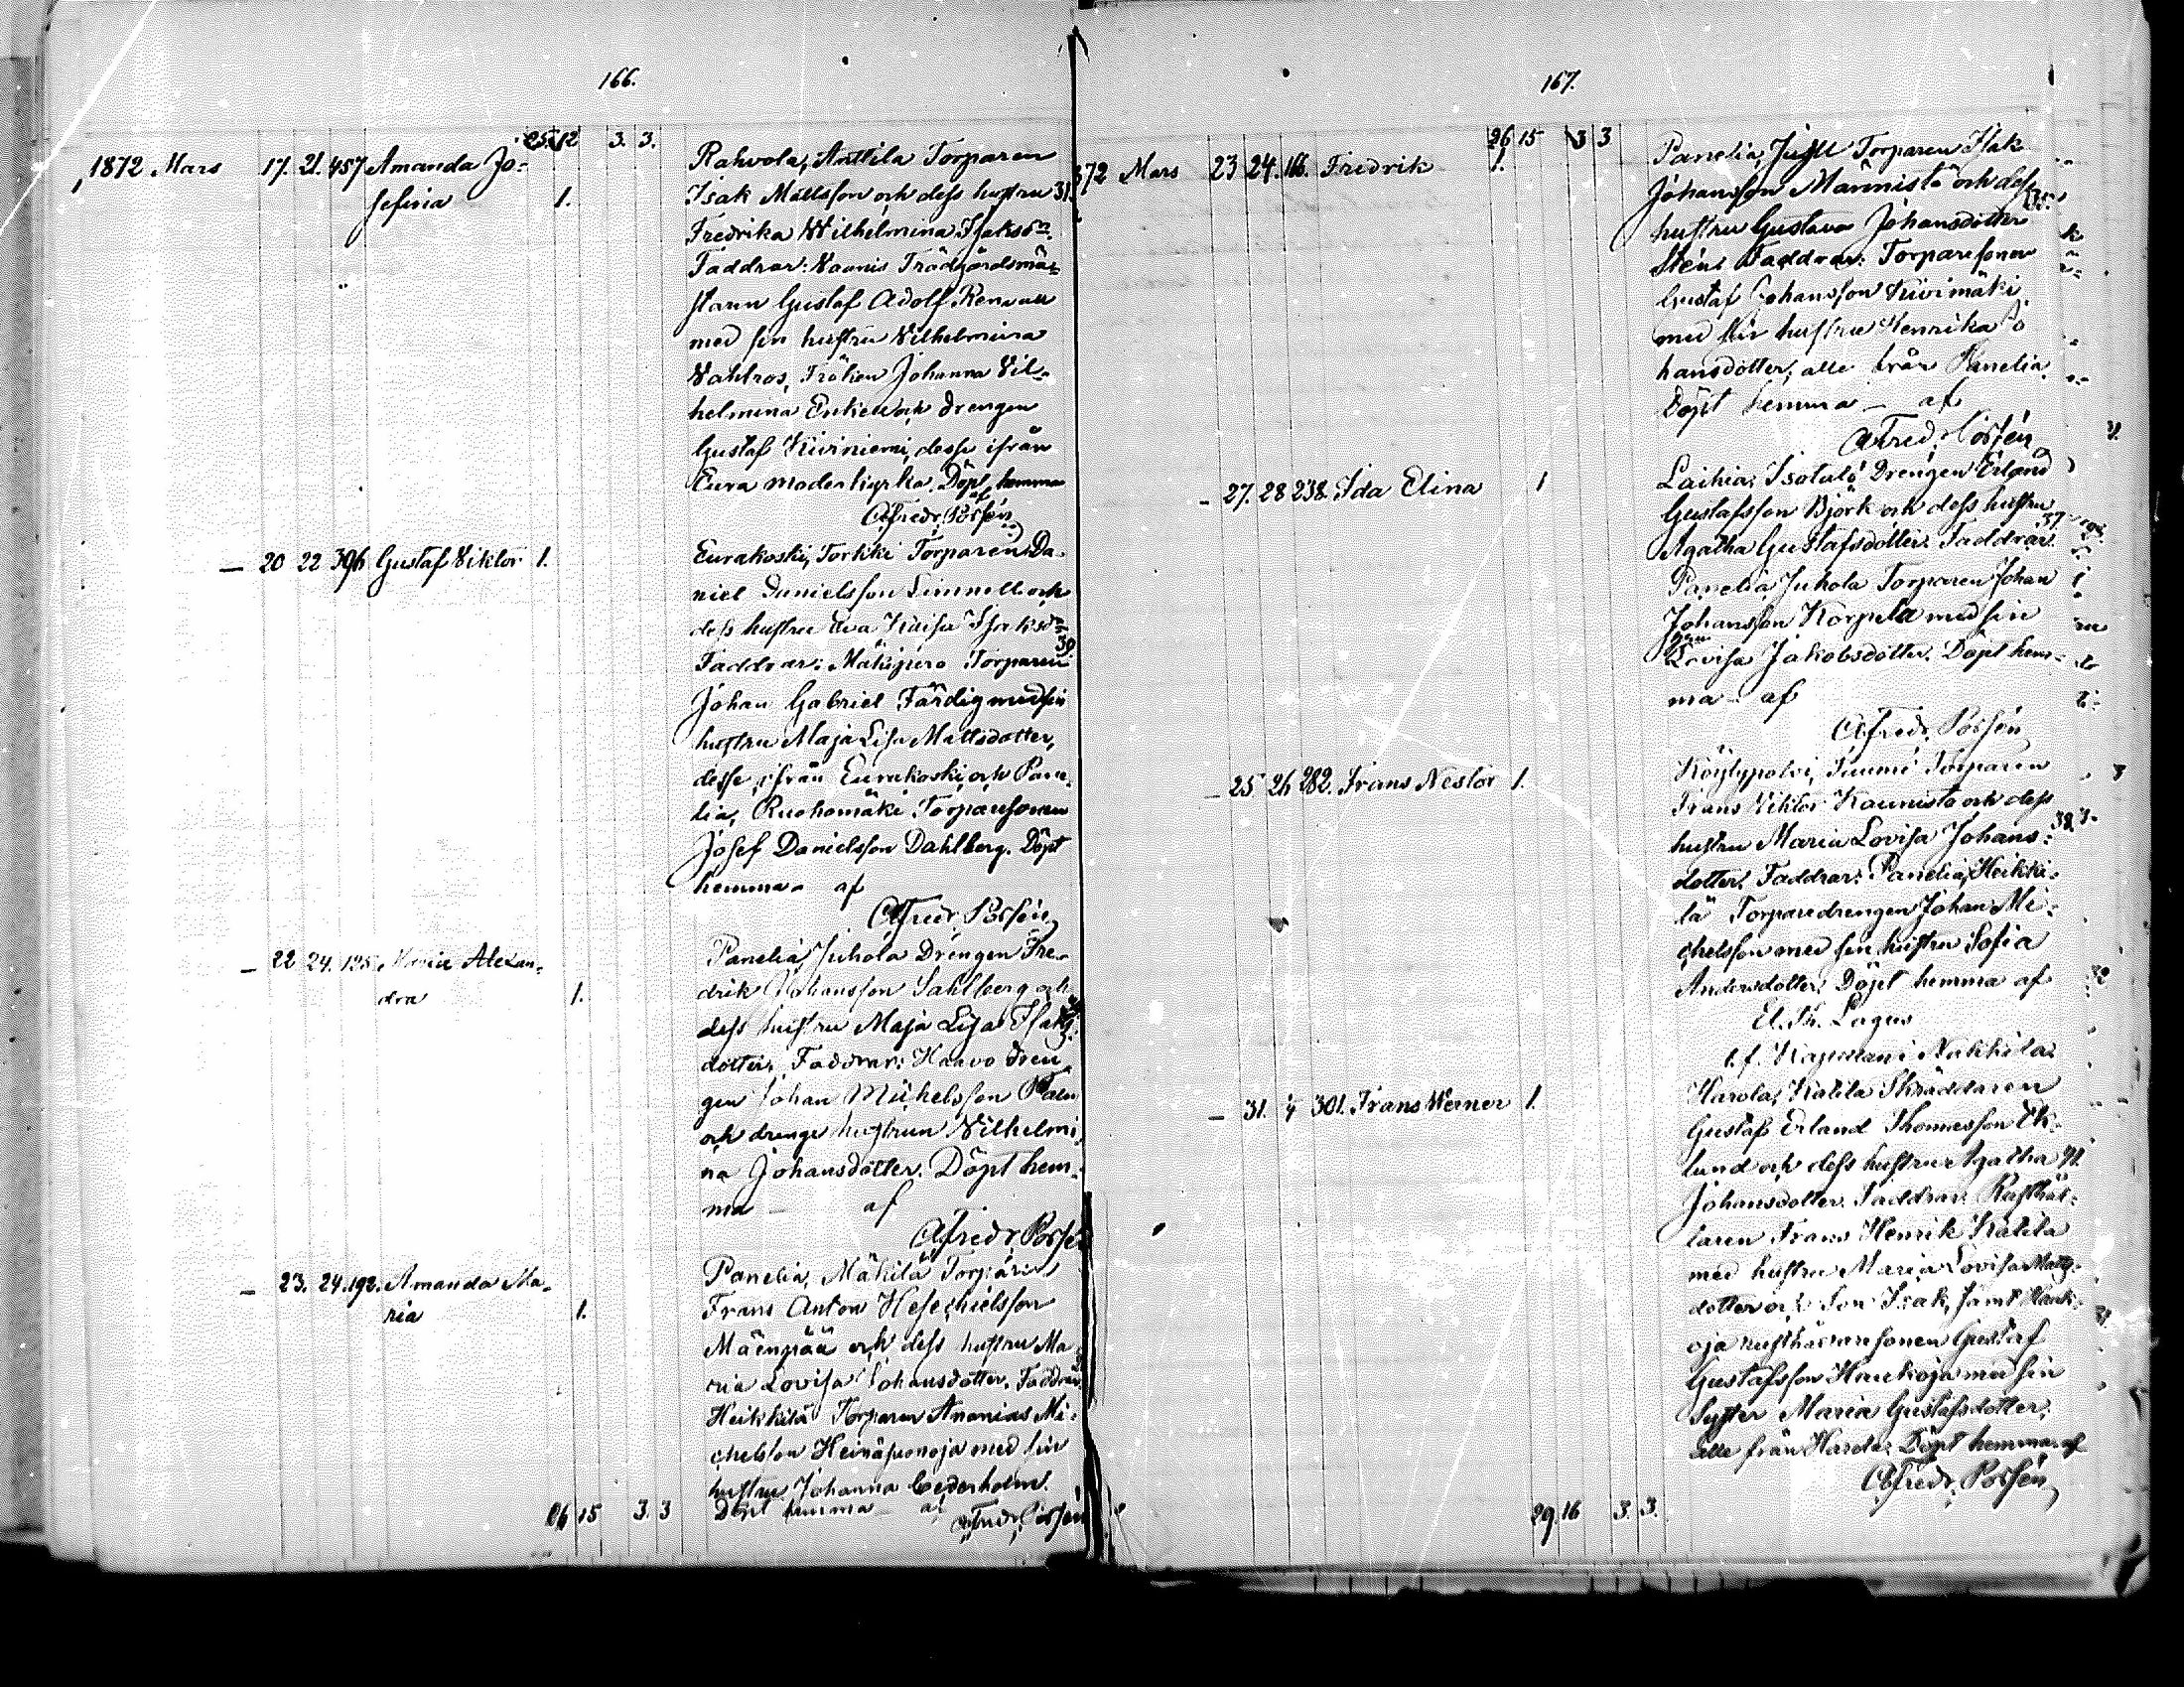 166.
25. 12 3. 3.
1872 Mars 17. 21. 457 Amanda Jo-
sefina 1.
Rahvola, Anttila Torparen
Isak Mattsson och dess hustru 31.
Fredrika Wilhelmina Isaksdr.
Faddrar: Trädgårdsmäs-
taren Gustaf Adolf
med sin hustru Vilhelmina
Vahlros, Fröken Johanna Vil-
helmina och drengen
Gustaf Kiviniemi, desse ifrån
Eura moderkyrka. Döpt hemma
af
Alfredr. Possén
— 20 22 396 Gustaf Viktor 1.
Eurakoski, Torkki Torparen Da-
niel Danielsson och
dess hustru Eva Kaisa Isaksdr
39.
Faddrar: Mäkipere Torparen
Johan Gabriel Färdig med sin
hustru Maja Lisa Mattsdotter,
desse ifrån Eurakoski, och Pane-
lia, Ruohomäki Torparesonen
Josef Danielsson Dahlberg. Döpt
hemma - af
Alfredr. Possén
— 22 24. Maria Alexan-
dra 1.
Panelia, Juhola Drengen Fre-
drik Johansson Sahlberg och
dess hustru Maja Lisa Isaks-
dotter. Faddrar: Haavo dren-
gen Johan Michelsson
och drenge hustrun Vilhelmi-
na Johansdotter. Döpt hem-
ma — af
Alfredr Possén
— 23. 24. 192. Amanda Ma-
ria 1.
Panelia, Mäkilä Torparen
Frans Anton Hesechielsson
Mäenpää och dess hustru Ma-
ria Lovisa Johansdotter. Faddrar:
Heikkilä Torparen Ananias Mi-
chelsson Heinäpuonoja med sin
hustru Johanna Cederholm.
Döpt hemma — af Alfredr. Possén
26 15 3. 3
167.
26 15 3 3
1872 Mars 23 24. 166. Fredrik 1.
Panelia, Torparen Isak
Johansson Männistö och dess
hustru Gustava Johansdotter
Stén. Faddrar: Torparesonen
Gustaf Johansson Kivimäki
med sin hustru Henrika Jo
hansdotter, alle från Panelia.
Döpt hemma — af
Alfredr. Possén
— 27. 28 238. Ida Elina 1
Laihia, Isotalo Drengen Erland
Gustafsson Björk och dess hustru
37
Agatha Gustafsdotter. Faddrar:
Panelia, Juhola Torparen Johan
Johansson Korpela med sin
Lovisa Jakobsdotter. Döpt hem-
ma — af
Alfredr. Possén
— 25 26 282. Frans Nestor 1.
Köylypolvi, Torparen
Frans Viktor Kaunisto och dess
hustru Maria Lovisa Johans- 38.
dotter. Faddrar: Panelia, Heikki-
lä Torparedrengen Johan Mi-
chelsson med sin hustru Sofia
Andersdotter. Döpt hemma af
El. Th. Lagus
t. f. Kapellan i Nakkila
— 31. 4 301. Frans Werner 1.
Harola, Katila Skräddaren
Gustaf Erland Thomasson Ek-
lund och dess hustru Agatha 41.
Johansdotter. Faddrar: Rusthål-
laren Frans Henrik Katila
med hustru Maria Lovisa Matts-
dotter och Son Isak, samt Hauk-
oja rusthållaresonen Gustaf
Gustafsson Haukoja med sin
Syster Maria Gustafsdotter,
alle från Harola. Döpt hemma af
Alfredr. Possén
29. 16 3. 3.